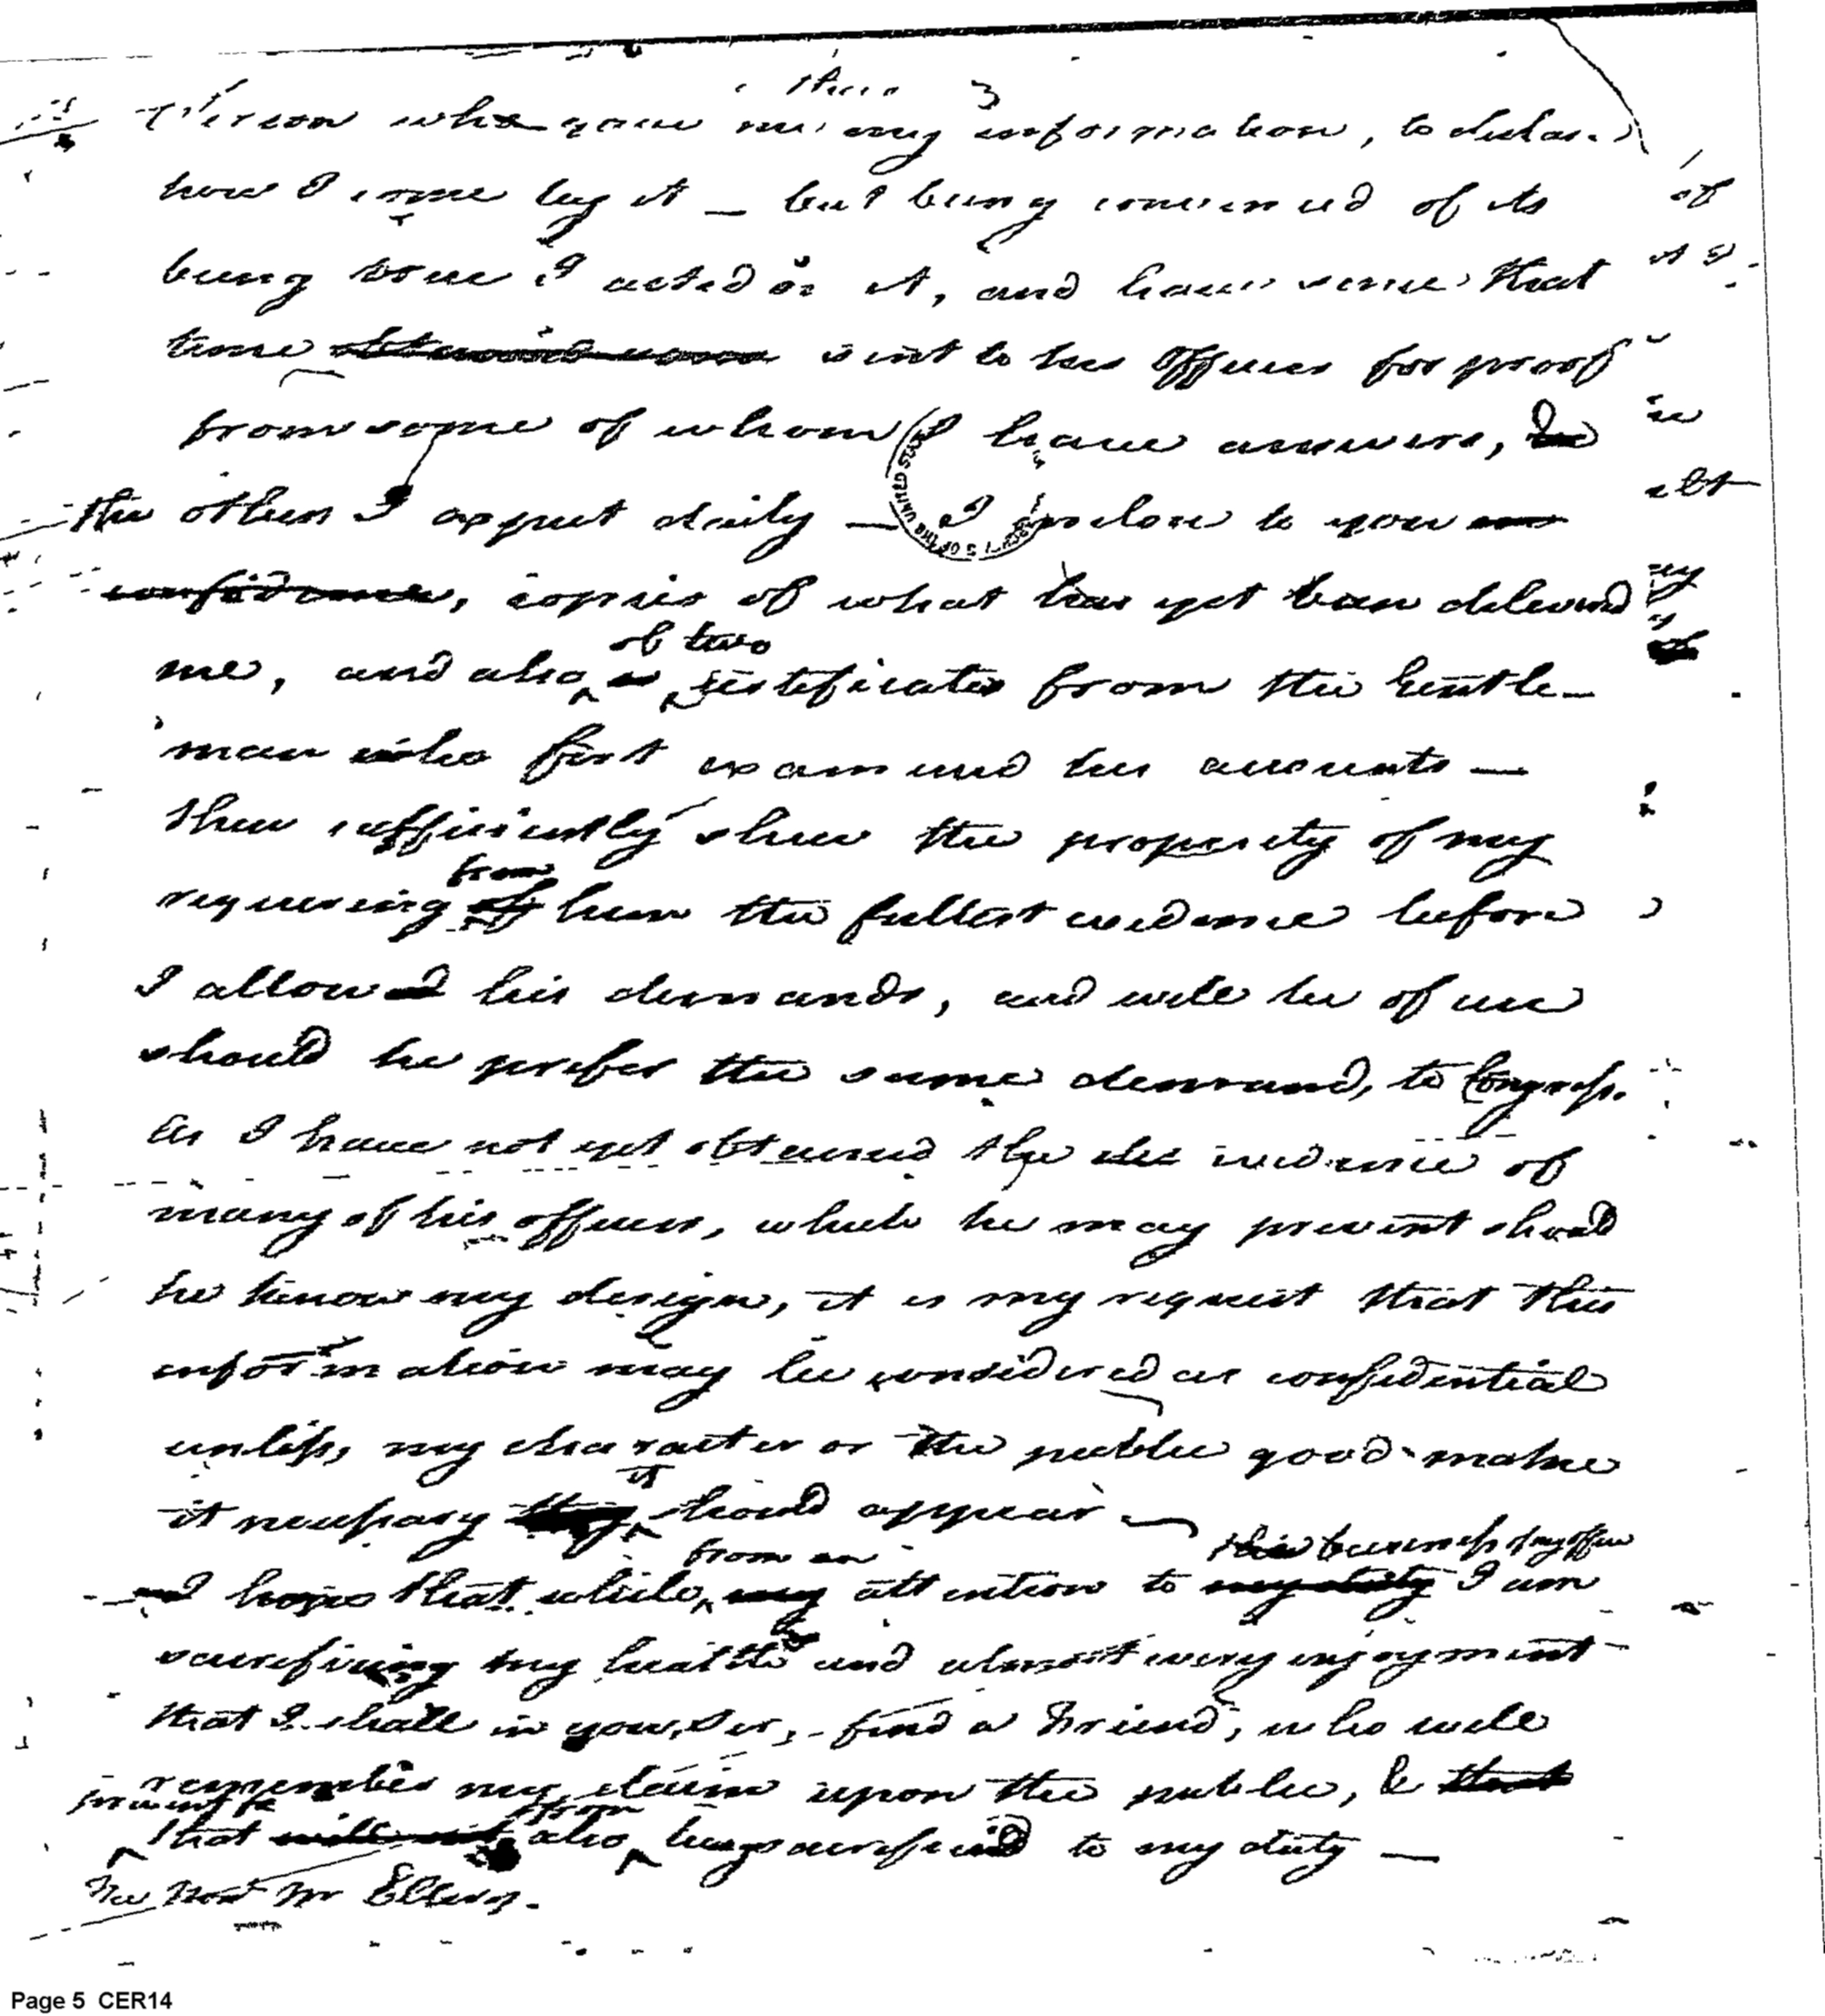 person who gave me my information, to declare
how I came by it — but being convinced of its
being true I acted on it, and have since that
time sent to his Officers for proof
from some of whom I have answers,
the others I expect daily — I inclose to you
confidence, copies of what has yet been delivered
of two
me, and also certificates from the Gentle-
man who first examined his accounts —
these sufficiently shew the propriety of my
from
requiring of him the fullest evidence before
I allowed his demands, and will be of use
should he prefer the same demand, to Congress.
As I have not yet obtained the evidence of
many of his officers, which he may prevent should
he know my design, it is my request that this
information may be considered as confidential
unless, my character or the public good make
it
it necessary they should appear —
from an this business of my office
I hope that while my attention to my duty I am
sacrificing my health and almost every enjoyment
that I shall in you, Sir, find a Friend, who will
remember my claim upon the public, & that
prevent
from
that will not also being sacrificed to my duty —
The Hon Mr Ellery.
Page 5 CER14